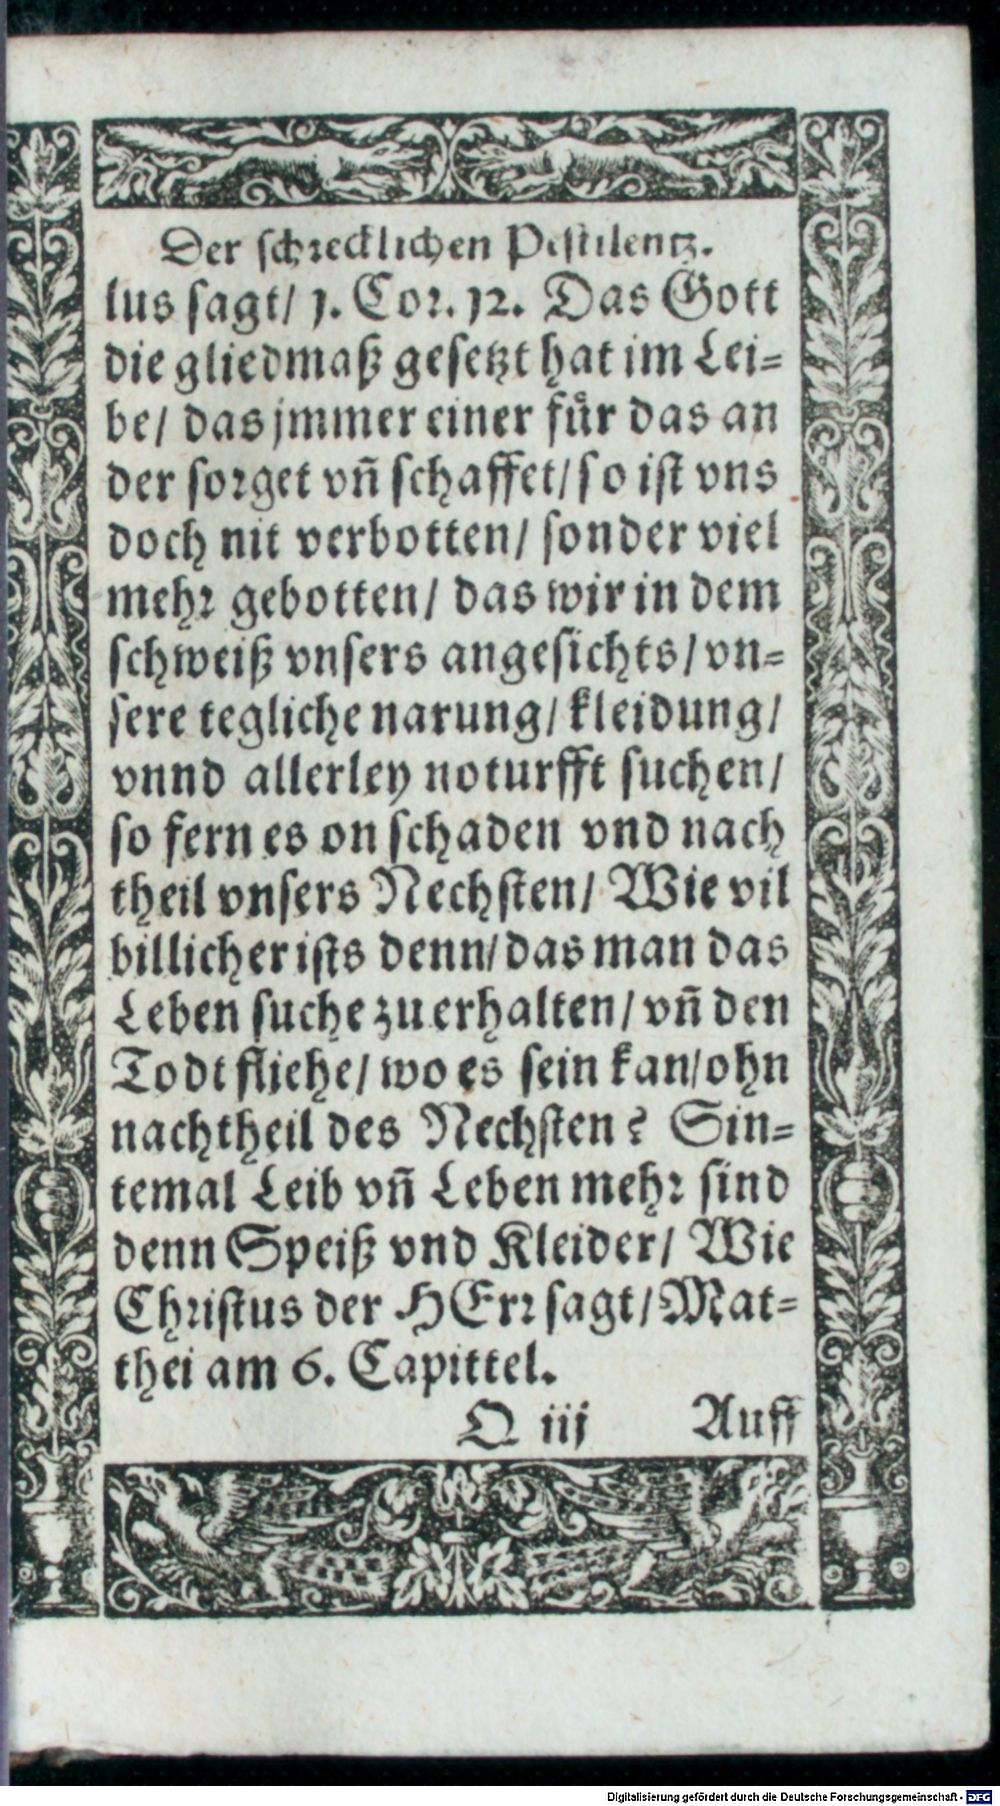 Der schrecklichen Pestilentz.
lus sagt/ 1. Cor. 12. Das Gott
die gliedmaß gesetzt hat im Lei-
be/ das jmmer einer fuͤr das an
der sorget vñ schaffet/ so ist vns
doch nit verbotten/ sonder viel
mehr gebotten/ das wir in dem
schweiß vnsers angesichts/ vn-
sere tegliche narung/ kleidung/
vnnd allerley noturfft suchen/
so fern es on schaden vnd nach
theil vnsers Nechsten/ Wie vil
billicher ists denn/ das man das
Leben suche zu erhalten/ vñ den
Todt fliehe/ wo es sein kan/ ohn
nachtheil des Nechsten? Sin-
temal Leib vñ Leben mehr sind
denn Speiß vnd Kleider/ Wie
Christus der HErr sagt/ Mat-
thei am 6. Capittel.
O iij Auff
Digitalisierung gefördert durch die Deutsche Forschungsgemeinschaft - DFG